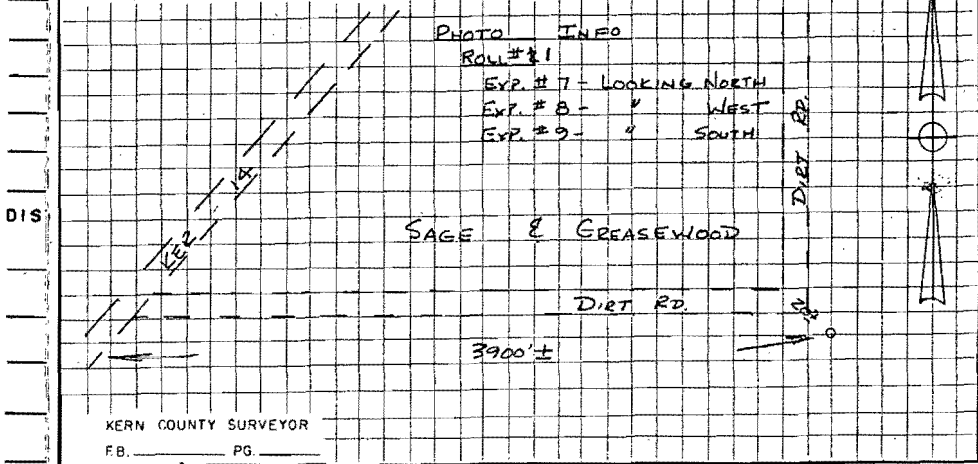 PHOTO INFO
ROLL # 1
EXP. # 7 - LOOKING NORTH
EXP. # 8 - " WEST
EXP. # 9 - " SOUTH
DIRT RD.
14
KER
DIS
SAGE & GREASEWOOD
DIRT RD.
3900'±
KERN COUNTY SURVEYOR
F.B. PG.